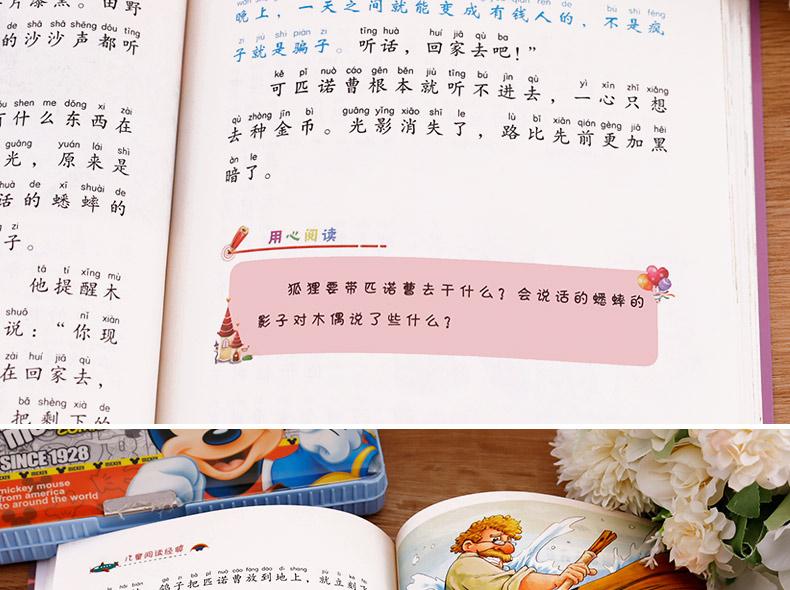 片漆黑。田野
的沙沙声都听
shā shā shēng dōu tīng
shen me dōng xi zài
有什么东西在
guāng yuán lái shì
光，原来是
huà de xī shuài de
话的蟋蟀的
zi
子。
tā tí xǐng mù
他提醒木
shuō nǐ xiàn
说：“你现
zài huí jiā qù
在回家去，
bǎ shèng xià de
把剩下的
晚上，一天之间就能变成有钱人的，不是疯
bú shì fēng
zi jiù shì piàn zi tīng huà huí jiā qù ba
子就是骗子。听话，回家去吧！”
kě pǐ nuò cáo gēn běn jiù tīng bú jìn qù yì xīn zhǐ xiǎng
可匹诺曹根本就听不进去，一心只想
qù zhòng jīn bì guāng yǐng xiāo shī le lù bǐ xiān qián gèng jiā hēi
去种金币。光影消失了，路比先前更加黑
àn le
暗了。
用心阅读
狐狸要带匹诺曹去干什么？会说话的蟋蟀的
影子对木偶说了些什么？
SINCE 1928
mickey mouse
from america
to around the world
儿童阅读经典
gē zi bǎ pǐ nuò cáo fàng dào dì shang jiù lì kè
鸽子把匹诺曹放到地上，就立刻